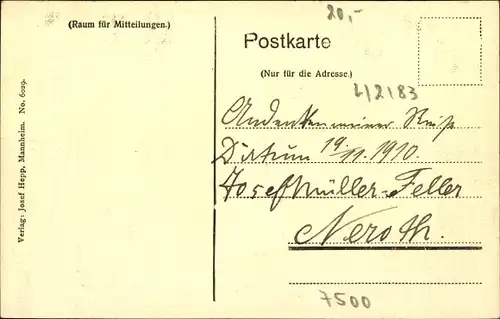 (Raum für Mitteilungen.)
Verlag: Josef Hepp, Mannheim. No. 6029.
20,-
Postkarte
(Nur für die Adresse.)
L/2183
Andenken meiner Reise
Datum 19./11. 1910.
Josef Müller-Feller
Neroth.
7500